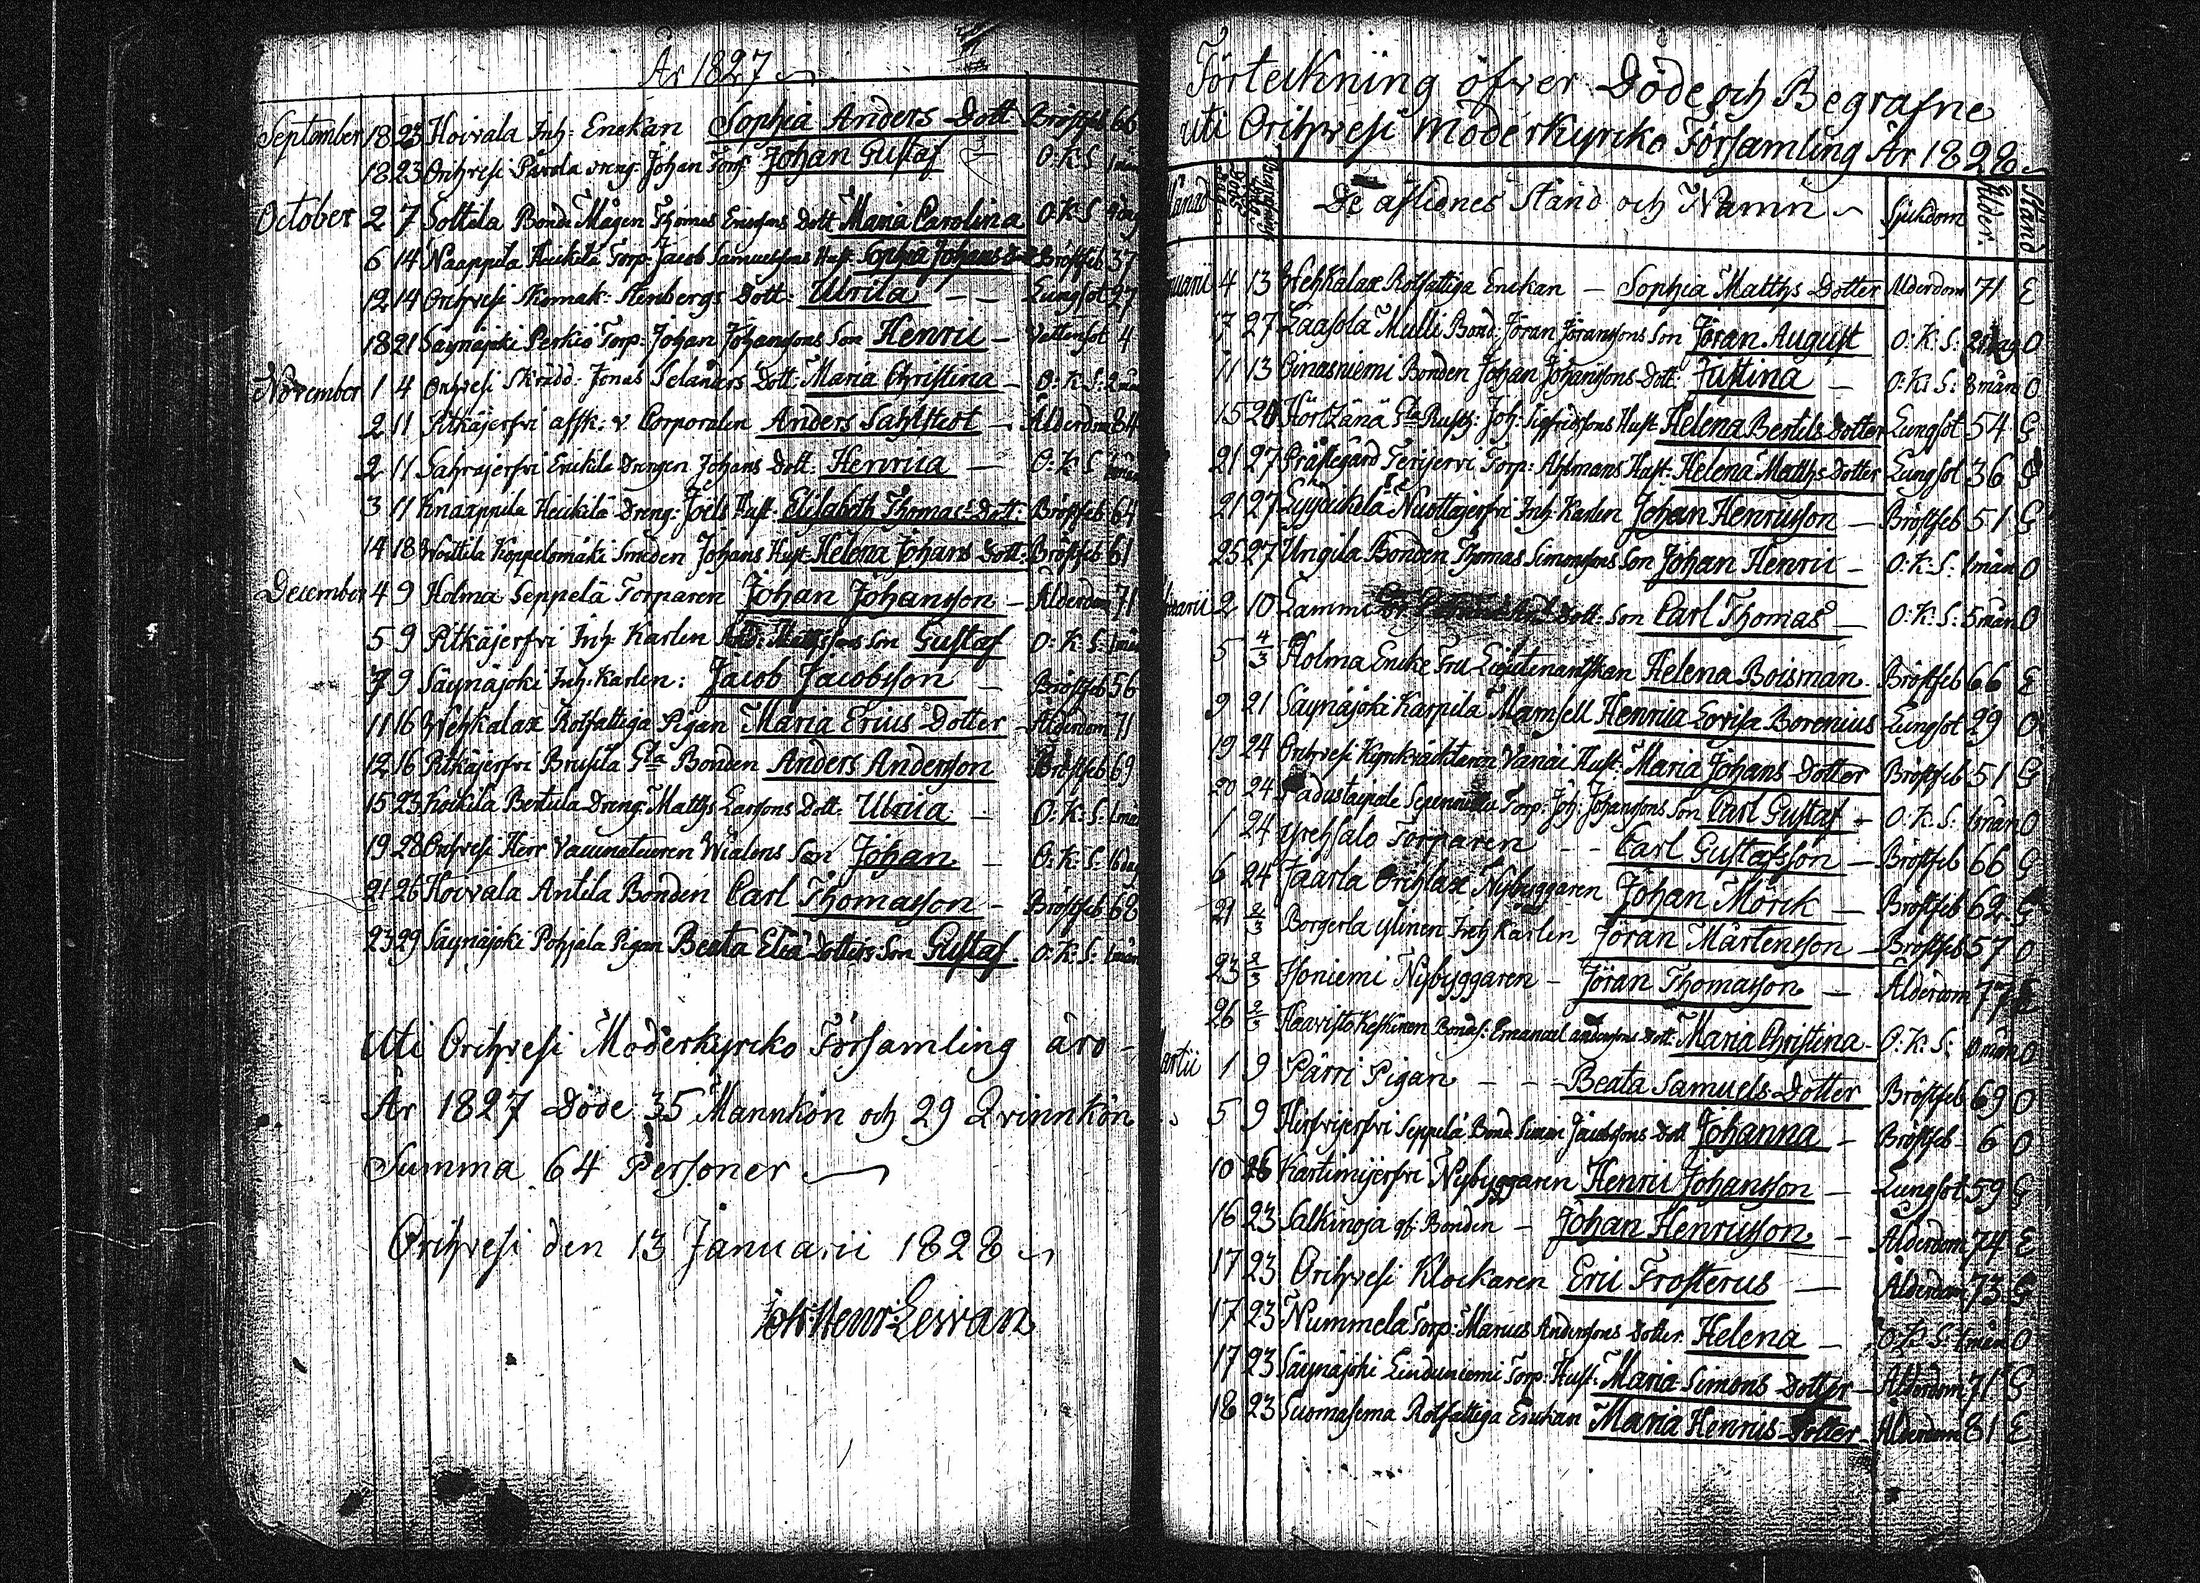 År 1827
September 18 23 Hoivala Inh: Enckan Sophia Anders Dott Bröstfeb 66
18 23 Orihvesi Pårola dreng Johan Johan Gustaf O: K: S: 1 mån
October 2 7 Sottila Bonde Mågen Thomas Ericssons Dott Maria Carolina O: K: S:
6 14 Naappila Heikilä Torp: Jacob Samuelssons Hust: Sophia Johans Bröstfeb 37
12 14 Orihvesi Skomak: Stenbergs Dott: Ulrica Lungsot 27
18 21 Säynäjoki Perkiö Torp: Johan Johanssons Son Henric Vattensot 4
November 1 4 Orihvesi Skrädd: Jonas Selanders Dott: Maria Christina O: K: S: 2 mån
2 11 Pitkäjerfvi affsk: v. Corporalen Anders Sahlstert Ålderdom 84
2 11 Sahrajerfvi Erickila Drengen Johans Dott: Henrica O: K: S:
3 11 Knaappila Heickilä Dreng: Joels Hust: Elisabeth Thomas Dott: Bröstfeb 64
14 18 Voittila Koppelomäki Smeden Johans Hust Helena Johans Dott: Bröstfeb 61
December 4 9 Holma Seppelä Torparen Johan Johansson Ålderdom 71
5 9 Pitkäjerfvi Inh: Karlen Mattssons Son Gustaf O: K: S: 1 mån
7 9 Säynäjoki Inh: Karlen: Jacob Jacobsson Bröstfeb 56
11 16 Wehkalax Rotfattiga Pigan Maria Erics Dotter Ålderdom 71
12 16 Pitkäjerfvi Brusila Gla Bonden Anders Andersson Bröstfeb 69
15 23 Koikila Bertula Dreng: Matths Larsons Dott: Ulrica O: K: S: 1 mån
19 28 Orihvesi Herr Vaccinateuren Wialens Son Johan O: K: S: 16 dag
21 26 Hoivala Antila Bonden Carl Thomasson Bröstfeb 68
23 29 Säynäjoki Pohjala Pigan Beata Eliæ Dotters Son Gustaf O: K: S: 1 mån
Uti Orihvesi Moderkyrcko Församling äro
År 1827 Döde 35 Mannkön och 29 Qvinnkön
Summa 64 Personer
Orihvesi den 13 Januarii 1828
Joh: Henr: Lewan
Förteckning öfver Döde och Begrafne
uti Orihvesi Moderkyrcko Församling År 1828
De aflidnes Stånd och Namn Sjukdom Ålder. Stånd
4 13 Wehkalax Rotfattiga Enckan Sophia Matths Dotter Ålderdom 71 E
17 27 Laasola Mulli Bond: Jöran Jöranssons Son Jöran August O: K: S: O
11 13 Oinasniemi Bonden Johan Johanssons Dott: Justina O: K: S: 8 mån O
15 20 Körtzänä Gla Rusth: Joh: Sigfridssons Hust: Helena Bertils Dotter Lungsot 54 G
21 27 Prästegård Terijervi Torp: Ahlmans Hust: Helena Matths Dotter Lungsot 36 G
21 27 Lyydikelä Nuottajerfvi Inh: Karlen Johan Henricsson Bröstfeb 51 G
25 27 Ungila Bonden Thomas Simonssons Son Johan Henric O: K: S: 1 mån O
2 10 Lammi Dott: Son Carl Thomas O: K: S: 5 mån O
5 4/3 Holma Encke Fru Lieutenantskan Helena Boisman Bröstfeb 66 E
9 21 Säynäjoki Karpila Mamsell Henrica Lovisa Borenius Lungsot 29 O
19 24 Orihvesi Kyrckväcktaren Vanäi Hust: Maria Johans Dotter Bröstfeb 51 G
20 24 Padustaipale Torp: Joh: Johanssons Son Carl Gustaf O: K: S: 1 mån O
1 24 Yrehsalo Torparen Carl Gustafsson Bröstfeb 66 G
6 24 Jaarla Orihlax Nybyggaren Johan Mörck Bröstfeb 62 G
21 2/3 Borgerla Ylinen Inh: Karlen Jöran Mårtensson Bröstfeb 57 O
23 2/3 Honiemi Nybyggaren Jöran Thomasson Ålderdom 77
26 2/3 Haavisto Keskinen Bonds: Emanuel Anderssons Dott: Maria Christina O: K: S: O
1 9 Pärri Pigan Beata Samuels Dotter Bröstfeb 69 O
5 9 Hirfvijerfvi Seppelä Bond Simon Jacobssons Dott Johanna Bröstfeb 6 O
10 16 Kartimijerfvi Nybyggaren Henric Johansson Lungsot 59 G
16 23 Salkinoja gf: Bonden Johan Henricsson Ålderdom 74 E
17 23 Orihvesi Klockaren Eric Frosterus Ålderdom 73 G
17 23 Nummela Torp: Marcus Anderssons Dotter Helena O: K: S: 1 mån O
17 23 Säynäjoki Linduniemi Torp: Hust: Maria Simons Dotter Ålderdom 71 G
18 23 Suomasema Rotfattiga Enckan Maria Henrics Dotter Ålderdom 81 E